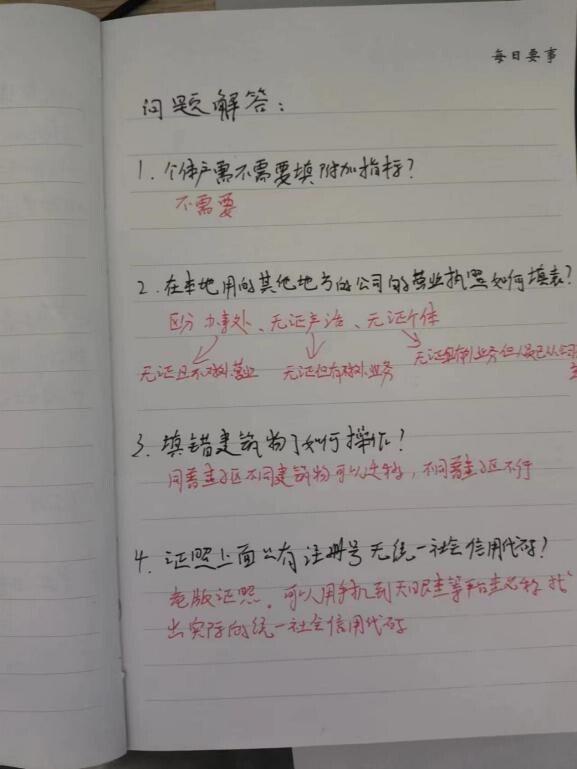 每日要事
问题解答：
1. 个体户需不需要填附加指标？
不需要
2. 在本地用的其他地方的公司的营业执照如何填表？
区分办事处、无证产活、无证个体
无证且不对外营业 无证但有对外业务 无证且有业务但人员已从公司
3. 填错建筑物了如何操作？
同普查小区不同建筑物可以迁移，不同普查小区不行
4. 证照上面只有注册号无统一社会信用代码？
老版证照。可以用手机到天眼查等平台查名称找
出实际的统一社会信用代码